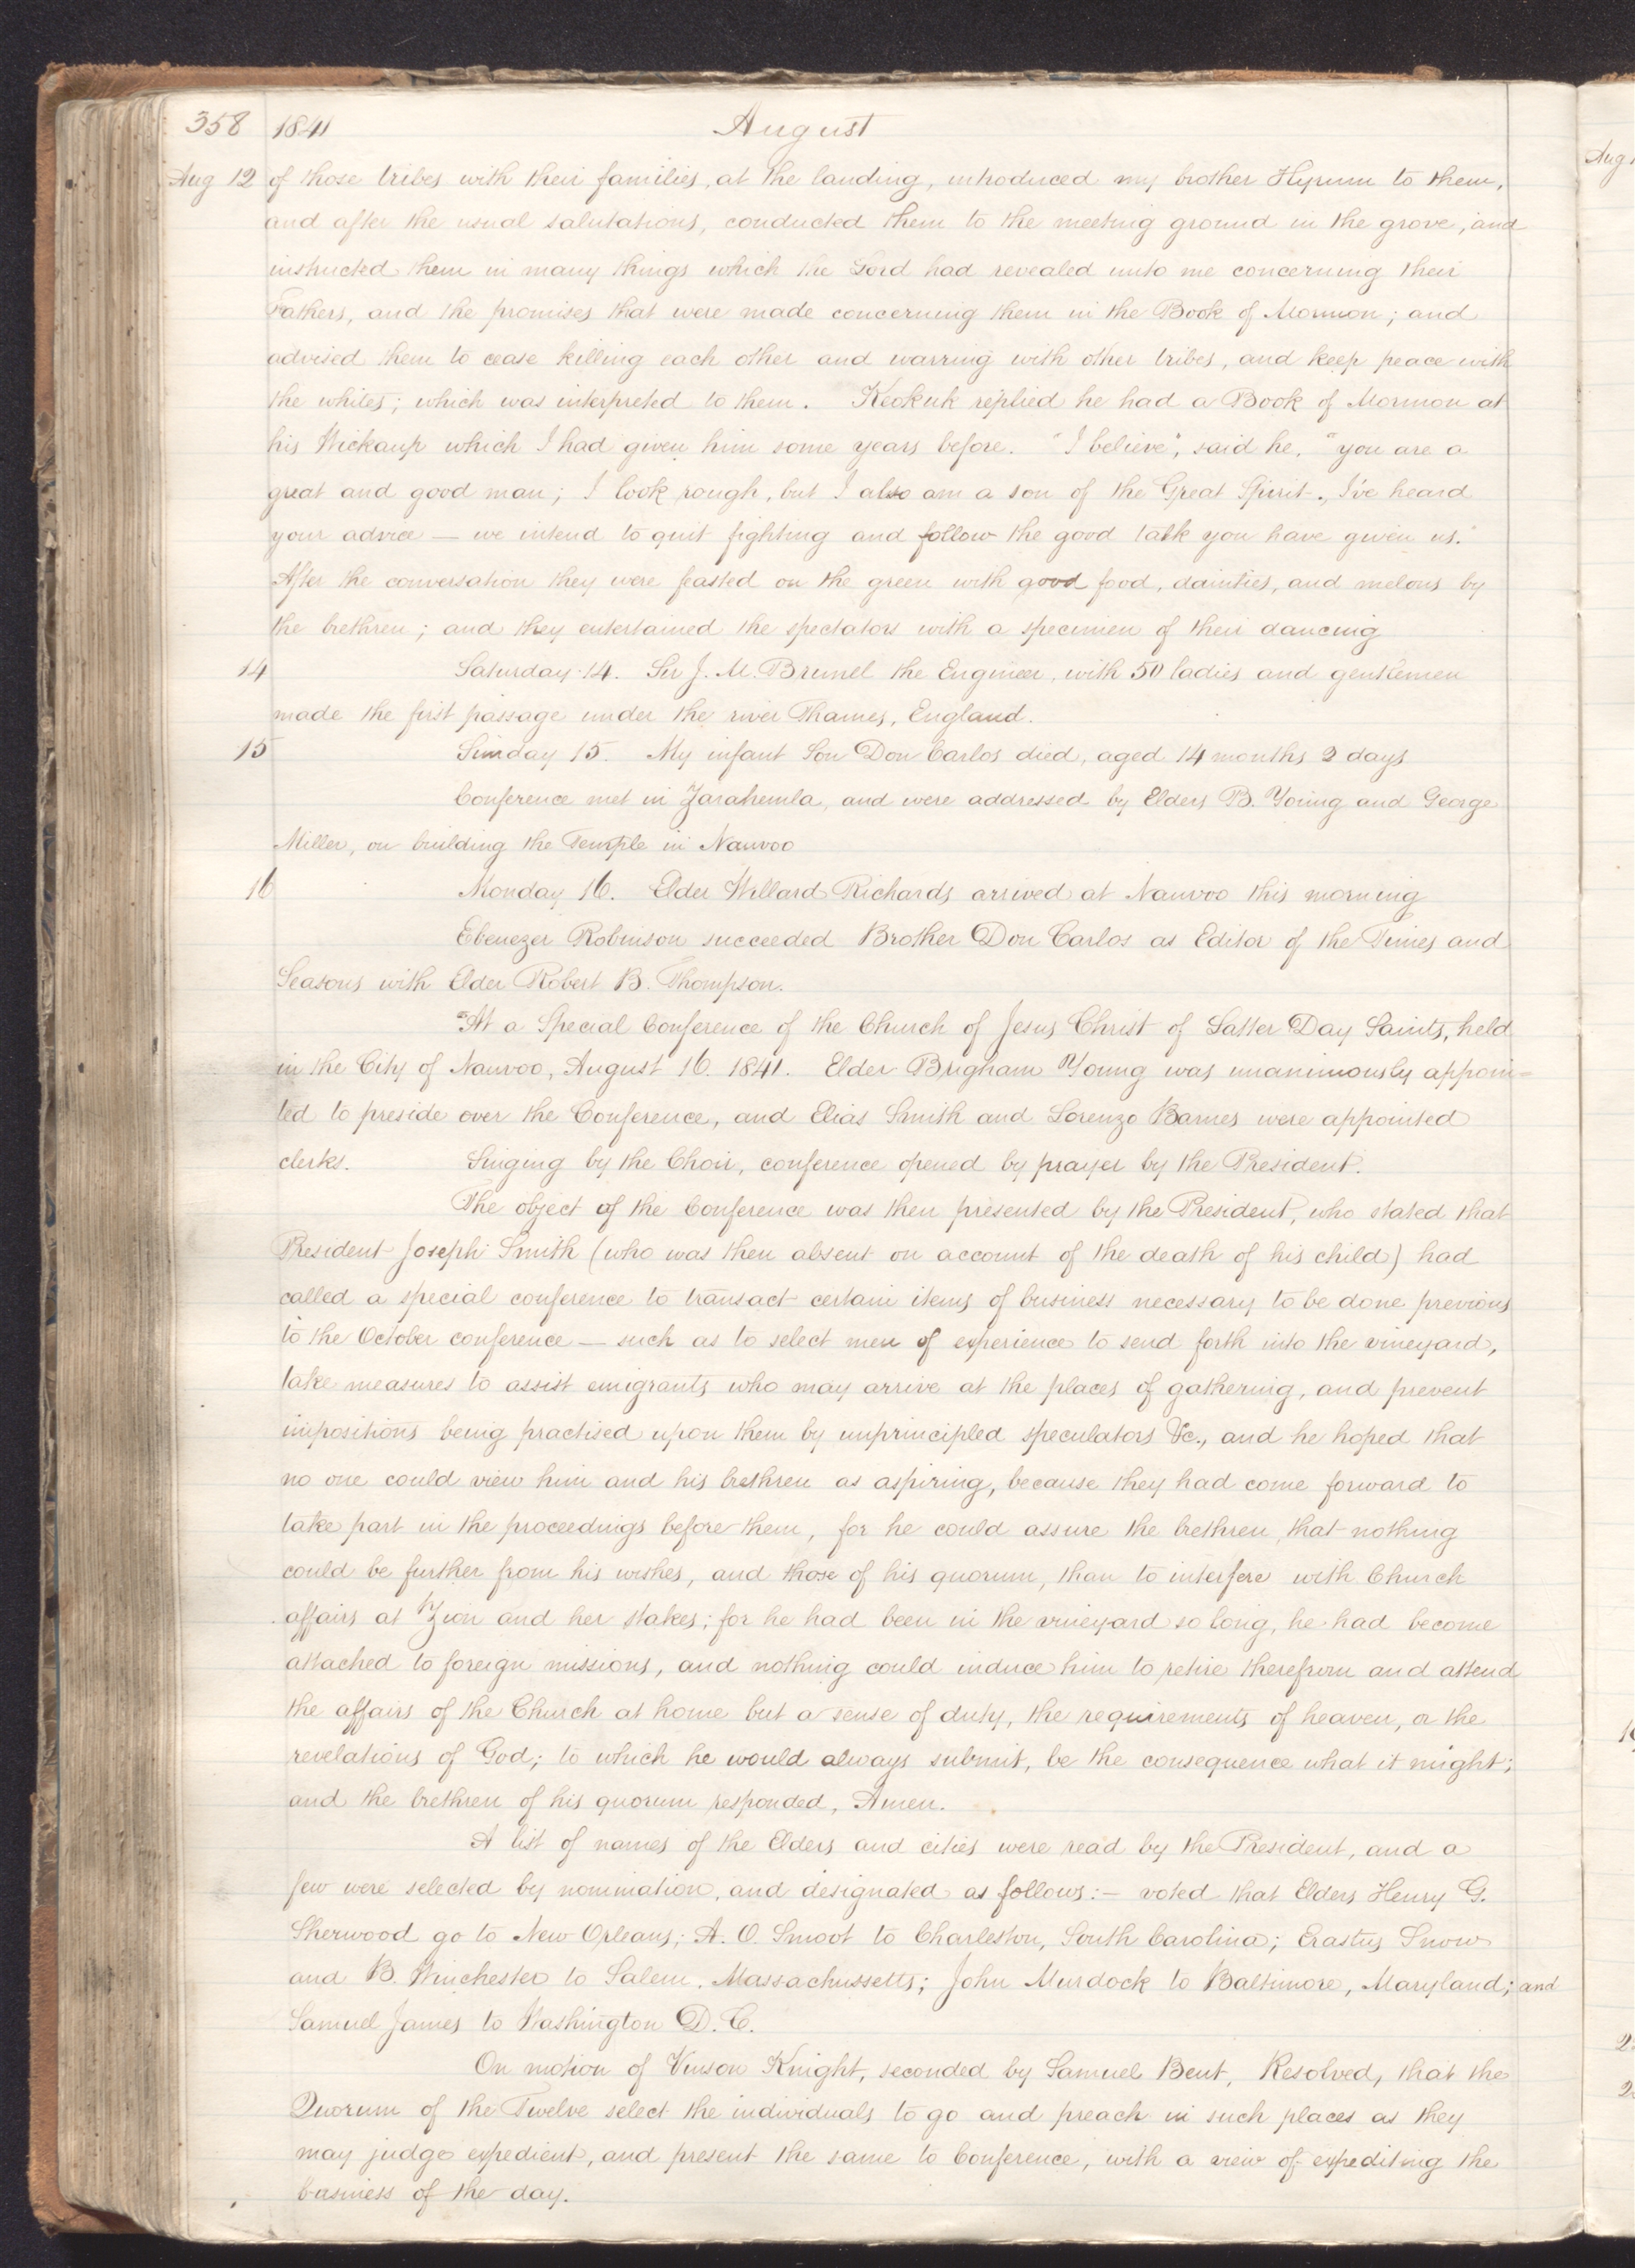 358 1841 August
Aug 12 of those tribes with their families, at the landing, introduced my brother Hyrum to them,
and after the usual salutations, conducted them to the meeting ground in the grove, and
instructed them in many things which the Lord had revealed unto me concerning their
Fathers, and the promises that were made concerning them in the Book of Mormon; and
advised them to cease killing each other and warring with other tribes, and keep peace with
the whites; which was interpreted to them. Keokuk replied he had a Book of Mormon at
his Wickaup which I had given him some years before. "I believe", said he, "you are a
great and good man; I look rough, but I also am a son of the Great Spirit., I've heard
your advice — we intend to quit fighting and follow the good talk you have given us."
After the conversation they were feasted on the green with good food, dainties, and melons by
the brethren; and they entertained the spectators with a specimen of their dancing
14 Saturday 14. Sir J. M. Brunel the Engineer, with 50 ladies and gentlemen
made the first passage under the river Thames, England.
15 Sunday 15. My infant Son Don Carlos died, aged 14 months 2 days
Conference met in Zarahemla, and were addressed by Elders B. Young and George
Miller, on building the Temple in Nauvoo
16 Monday 16. Elder Willard Richards arrived at Nauvoo this morning
Ebenezer Robinson succeeded Brother Don Carlos as Editor of the Times and
Seasons with Elder Robert B. Thompson.
"At a Special Conference of the Church of Jesus Christ of Latter Day Saints, held
in the City of Nauvoo, August 16. 1841. Elder Brigham Young was unanimously appoin=
ted to preside over the Conference, and Elias Smith and Lorenzo Barnes were appointed
clerks. Singing by the Choir, conference opened by prayer by the President.
The object of the Conference was then presented by the President, who stated that
President Joseph Smith (who was then absent on account of the death of his child) had
called a special conference to transact certain items of business necessary to be done previous
to the October conference — such as to select men of experience to send forth into the vineyard,
take measures to assist emigrants who may arrive at the places of gathering, and prevent
impositions being practised upon them by unprincipled speculators &c., and he hoped that
no one could view him and his brethren as aspiring, because they had come forward to
take part in the proceedings before them, for he could assure the brethren, that nothing
could be further from his wishes, and those of his quorum, than to interfere with Church
affairs at Zion and her stakes; for he had been in the vineyard so long, he had become
attached to foreign missions, and nothing could induce him to retire therefrom and attend
the affairs of the Church at home but a sense of duty, the requirements of heaven, or the
revelations of God; to which he would always submit, be the consequence what it might;
and the brethren of his quorum responded, Amen.
A list of names of the Elders and cities were read by the President, and a
few were selected by nomination, and designated as follows:— voted that Elders Henry G.
Sherwood go to New Orleans; A. O. Smoot to Charleston, South Carolina; Erastus Snow
and B. Winchester to Salem, Massachussetts; John Murdock to Baltimore, Maryland; and
Samuel James to Washington D. C.
On motion of Vinson Knight, seconded by Samuel Bent, Resolved, that the
Quorum of the Twelve select the individuals to go and preach in such places as they
may judge expedient, and present the same to Conference, with a view of expediting the
business of the day.
Aug